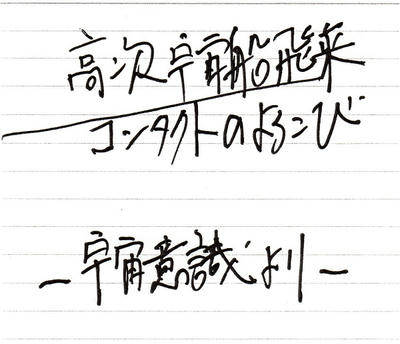 高次宇宙船飛来
コンタクトのよろこび
－宇宙意識より－